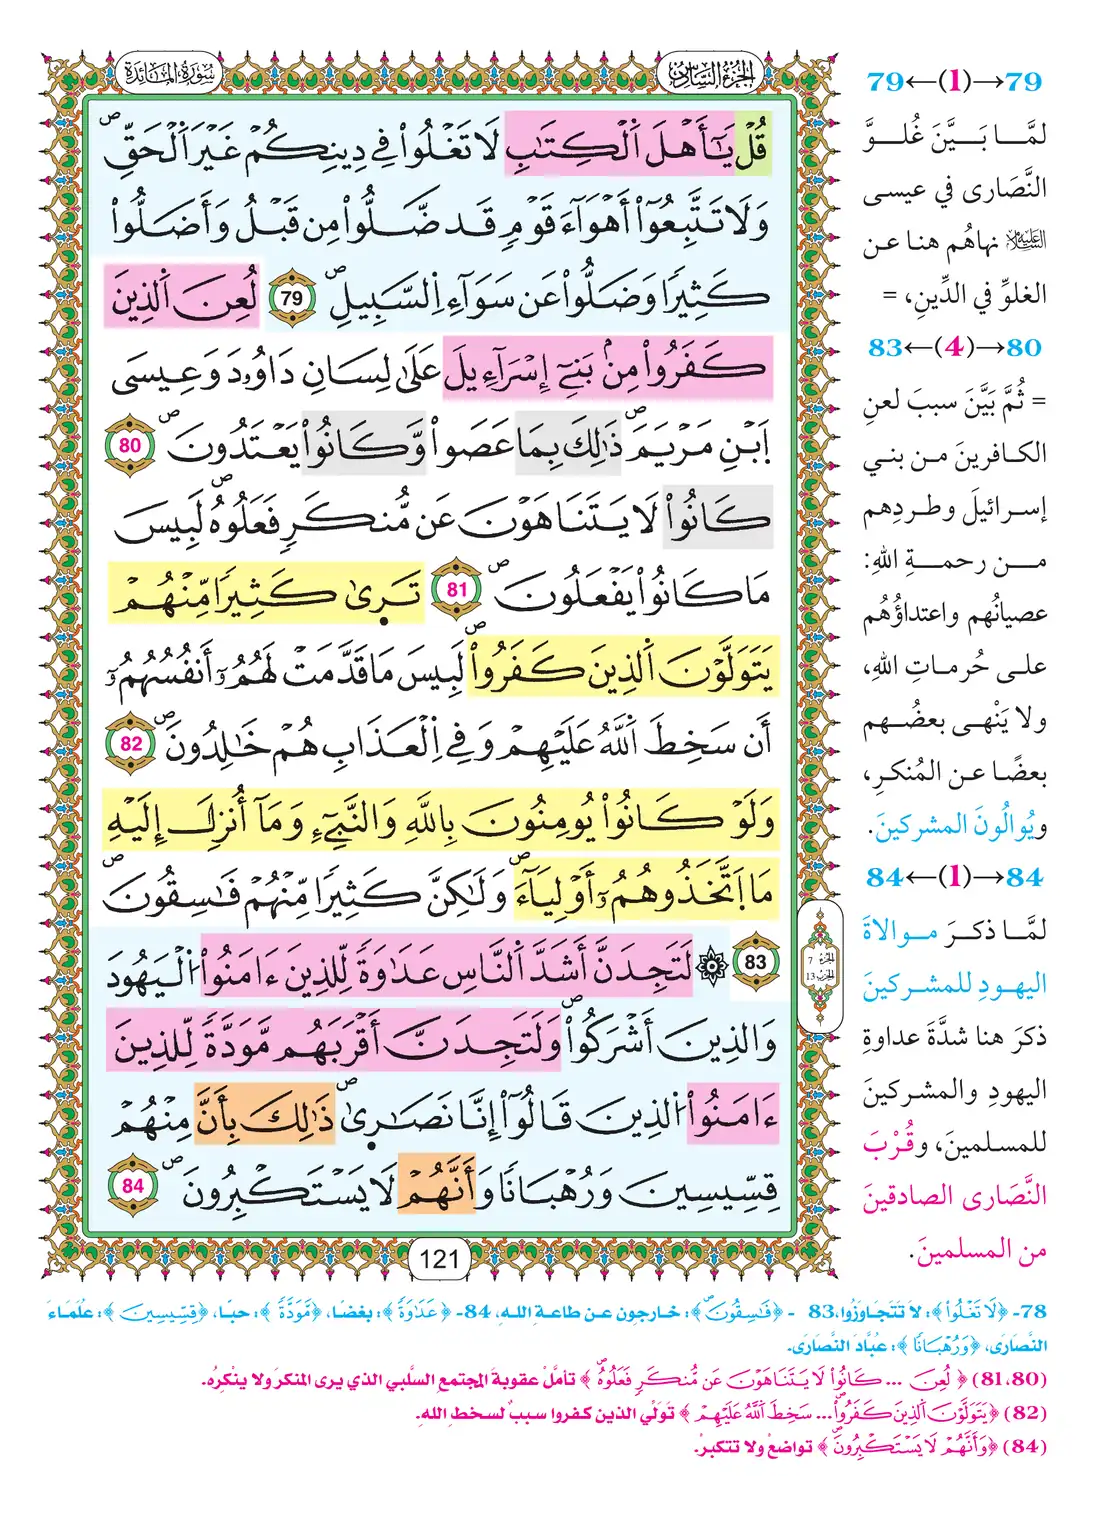 سُورَةُ المَائدَة
الجُزءُ السَّادِسُ
قُلْ يَٰٓأَهْلَ اَ۬لْكِتَٰبِ لَا تَغْلُواْ فِے دِينِكُمْ غَيْرَ اَ۬لْحَقِّۖ
وَلَا تَتَّبِعُوٓاْ أَهْوَآءَ قَوْمٖ قَد ضَّلُّواْ مِن قَبْلُ وَأَضَلُّواْ
كَثِيراٗ وَضَلُّواْ عَن سَوَآءِ اِ۬لسَّبِيلِۖ 79 لُعِنَ اَ۬لذِينَ
كَفَرُواْ مِنۢ بَنِےٓ إِسْرَآءِيلَ عَلَىٰ لِسَانِ دَاوُۥدَ وَعِيسَى
اَ۪بْنِ مَرْيَمَۖ ذَٰلِكَ بِمَا عَصَواْ وَّكَانُواْ يَعْتَدُونَۖ 80
كَانُواْ لَا يَتَنَاهَوْنَ عَن مُّنكَرٖ فَعَلُوهُۖ لَبِيسَ
مَا كَانُواْ يَفْعَلُونَۖ 81 تَرَىٰ كَثِيراٗ مِّنْهُمْ
يَتَوَلَّوْنَ اَ۬لذِينَ كَفَرُواْۖ لَبِيسَ مَا قَدَّمَتْ لَهُمُۥٓ أَنفُسُهُمُۥٓ
أَن سَخِطَ اَ۬للَّهُ عَلَيْهِمْ وَفِے اِ۬لْعَذَابِ هُمْ خَٰلِدُونَۖ 82
وَلَوْ كَانُواْ يُومِنُونَ بِاللَّهِ وَالنَّبِےٓءِ وَمَآ أُنزِلَ إِلَيْهِ
مَا اَ۪تَّخَذُوهُمُۥٓ أَوْلِيَآءَۖ وَلَٰكِنَّ كَثِيراٗ مِّنْهُمْ فَٰسِقُونَۖ
83 ۞ لَتَجِدَنَّ أَشَدَّ اَ۬لنَّاسِ عَدَٰوَةٗ لِّلذِينَ ءَامَنُواْ اُ۬لْيَهُودَ
وَالذِينَ أَشْرَكُواْۖ وَلَتَجِدَنَّ أَقْرَبَهُم مَّوَدَّةٗ لِّلذِينَ
ءَامَنُواْ اُ۬لذِينَ قَالُوٓاْ إِنَّا نَصَٰرَىٰۖ ذَٰلِكَ بِأَنَّ مِنْهُمْ
قِسِّيسِينَ وَرُهْبَاناٗ وَأَنَّهُمْ لَا يَسْتَكْبِرُونَۖ 84
121
الجزء 7
الحزب 13
79←(1)→79
لمَّا بَيَّنَ غُلوَّ
النَّصَارى في عيسى
عليه السلام نهاهُم هنا عن
الغلوِّ في الدِّينِ، =
80→(4)←83
= ثُمَّ بَيَّنَ سببَ لعنِ
الكافرينَ من بني
إسرائيلَ وطردِهم
من رحمةِ اللهِ:
عصيانُهم واعتداؤُهُم
على حُرماتِ اللهِ،
ولا يَنْهى بعضُهم
بعضًا عن المُنكرِ،
ويُوالُونَ المشركينَ.
84→(1)←84
لمَّا ذكرَ موالاةَ
اليهودِ للمشركينَ
ذكرَ هنا شدَّةَ عداوةِ
اليهودِ والمشركينَ
للمسلمينَ، وقُرْبَ
النَّصَارى الصادقينَ
من المسلمينَ.
78- ﴿لَا تَغْلُواْ﴾: لا تَتَجَاوَزُوا، 83 - ﴿فَٰسِقُونَۖ﴾: خارجون عن طاعةِ اللهِ، 84- ﴿عَدَٰوَةٗ﴾: بغضًا، ﴿مَّوَدَّةٗ﴾: حبًا، ﴿قِسِّيسِينَ﴾: عُلَمَاءَ
النَّصَارَى، ﴿وَرُهْبَاناٗ﴾: عُبَّادَ النَّصَارَى.
(81،80) ﴿لُعِنَ ... كَانُواْ لَا يَتَنَاهَوْنَ عَن مُّنكَرٖ فَعَلُوهُۖ﴾ تأمَّلْ عقوبةَ المجتمعِ السَّلبي الذي يرى المنكرَ ولا ينْكِرُه.
(82) ﴿يَتَوَلَّوْنَ اَ۬لذِينَ كَفَرُواْۖ ... سَخِطَ اَ۬للَّهُ عَلَيْهِمْ﴾ تولِّي الذين كفروا سببٌ لسخطِ اللهِ.
(84) ﴿وَأَنَّهُمْ لَا يَسْتَكْبِرُونَۖ﴾ تواضعْ ولا تتكبرْ.